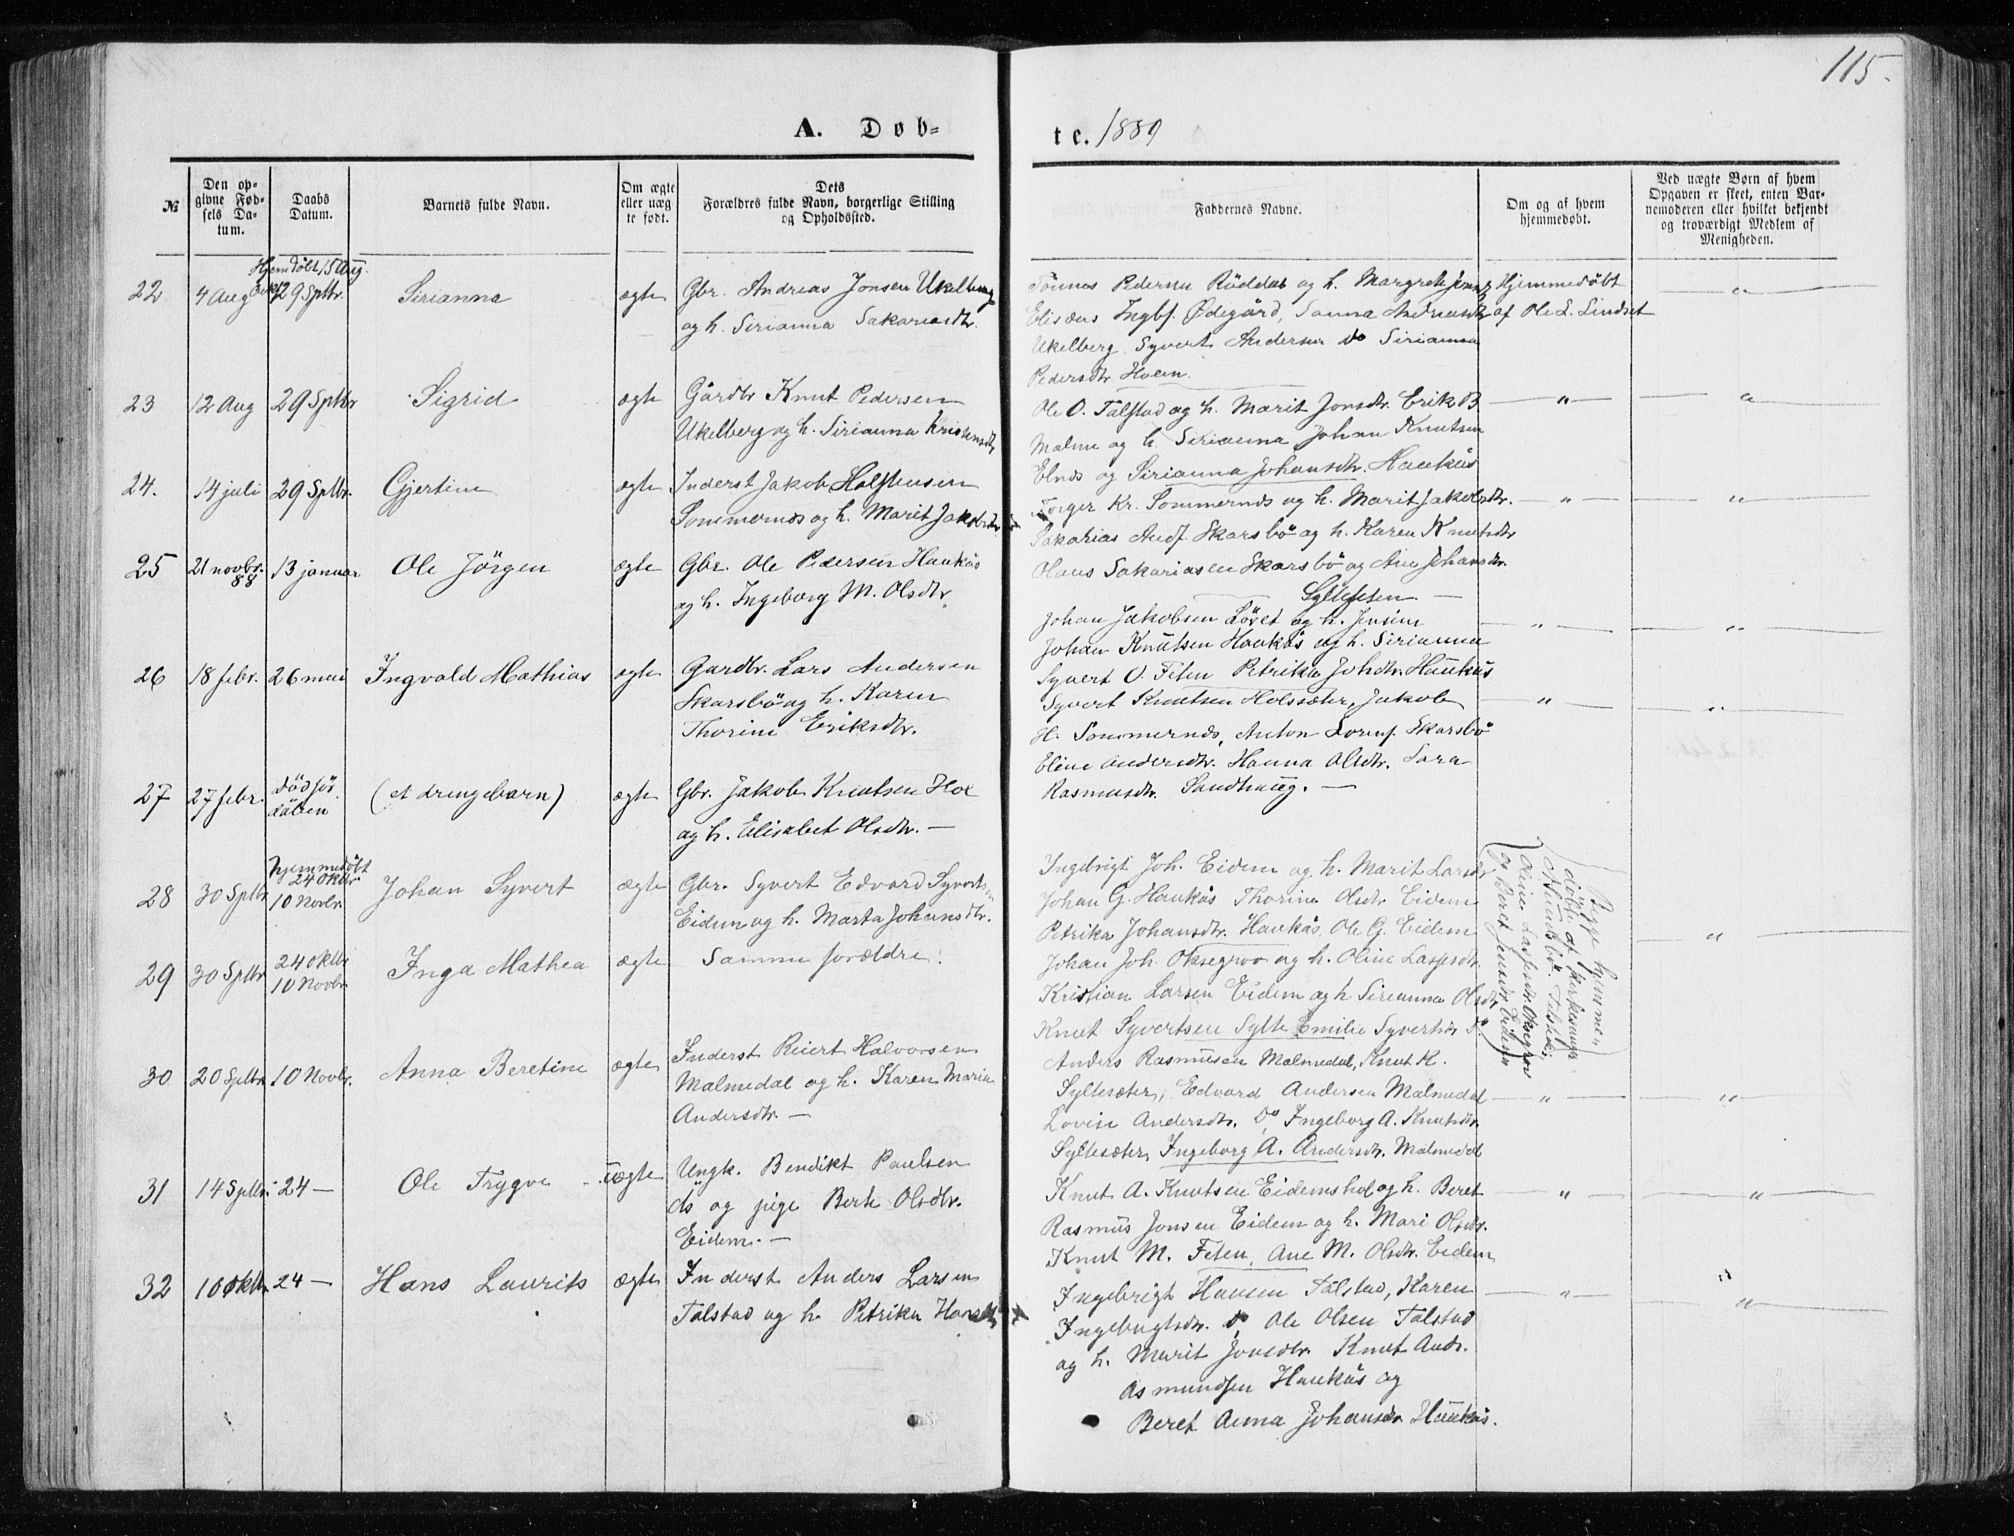 115.
A. Døb-
te. 1889
№
Den op-
givne Fød-
sels Da-
tum.
Daabs
Datum.
Barnets fulde Navn.
Om ægte
eller uæg
te født.
Dets
Forældres fulde Navn, borgerlige Stilling
og Opholdssted.
Faddernes Navne.
Om og af hvem
hjemmedøbt.
Ved uægte Børn af hvem
Opgaven er skeet, enten Bar-
nemoderen eller hvilket bekjendt
og troværdigt Medlem af
Menigheden.
Hjemdøbt 15 Aug.
22 4 Aug 29 Sptbr. Sirianna ægte Gbr. Andreas Jonsen Ukelberg
og h. Sirianna Sakariasdtr.
Tønnes Pedersen Röddal og h. Margrete Jensd
Elisæus Ingbr. Ødegård, Sanna Andreasdtr
Ukelberg, Syvert Andersen Do Sirianna
Pedersdtr Hoem.
Hjemmedøbt
af Ole L. Lindset
"
23 12 Aug 29 Sptbr Sigrid ægte Gårdbr Knut Pedersen
Ukelberg og h. Sirianna Kristensdtr
Ole O. Talstad og h. Marit Jonsdtr. Erik B
Malme og h. Sirianna, Johan Knutsen
Elnes og Sirianna Johansdtr. Haukås
" "
24. 14 juli 29 Sptbr. Gjertine ægte Inderst Jakob Halfhusen
Sommernes og h. Marit Jakobsdtr
Torger Kr. Sommernes og h. Marit Jakobsdtr.
Sakarias Andr. Skarsbö og h. Karen Knutsdtr
Olaus Sakariasen Skarsbö og Ane Johansdtr.
Syltesæter.
" "
25 21 novbr. 88 13 januar Ole Jörgen ægte Gbr. Ole Pedersen Haukås
og h. Ingeborg M. Olsdtr.
Johan Jakobsen Löset og h. Jensine
Johan Knutsen Haukås og h. Sirianna
Syvert O. Feten Petrikke Johsdtr. Haukås
" "
26 18 febr. 26 mai Ingvald Mathias ægte Gardbr. Lars Andersen
Skarsbö og h. Karen
Thorine Eriksdtr.
Syvert Knutsen Holssæter, Jakob
H. Sommernes, Anton Lorens. Skarsbö
Eline Andersdtr. Hanna Olsdtr. Sara
Rasmusdtr. Sandhaug.
" "
27 27 febr. dödfö.
(et drengebarn) ægte Gbr. Jakob Knutsen Hoe
og h. Elisabet Olsdtr.
28 30 Sptbr hjemmedöbt
24 Oktbr.
10 Novbr. Johan Syvert ægte Gbr. Syvert Edvard Syvertsen
Eidem og h. Marta Johansdtr.
Ingebrigt Joh. Eidem og h. Marit Larsdtr
Johan G. Haukås Thorine Olsdtr Eidem
Petrika Johansdtr. Haukås, Ole G. Eidem
"
29 30 Sptbr 24 Oktbr
10 Novbr. Inga Mathea ægte Samme forældre.
Johan Joh. Oksegrov og h. Oline Lassesdtr.
Kristian Larsen Eidem og h Sirianna Olsdtr
Knut Syvertsen Sylte Emilie Syvertsdtr Do
Begge hjemme
döbte af kirkesanger
Oline Lassesdtr. Oksegrov
og Beret Jensdtr. Eidem
30 20 Sptbr 10 Novbr. Anna Beretine ægte Inderst Reiert Halvorsen
Malmedal og h. Karen Maria
Andersdtr.
Anders Rasmusen Malmedal, Knut K.
Syltesæter, Edvard Andersen Malmedal
Lovise Andersdtr. Do Ingeborg A. Knutsdtr.
Syltesæter, Ingeborg A. Andersdtr. Malmedal
" "
31 14 Sptbr. 24 — Ole Trygve uægte Ungk. Bendikt Paulsen
ds og pige Berte Olsdtr.
Eidem.
Knut A. Knutsen Eidemshol og h. Beret
Rasmus Jonsen Eidem og h. Mari Olsdtr.
Knut M. Feten, Ane M. Olsdtr. Eidem
" "
32 10 Oktbr. 24 — Hans Laurits ægte Inderst Anders Larsen
Talstad og h. Petrika Hansdtr
Ingebrigt Hansen Talstad, Karen
Ingebrigtsdtr. Do Ole Olsen Talstad
og h. Marit Jonsdtr. Knut Andr.
Asmundsen Haukås og
Beret Anna Johansdtr Haukås.
" "